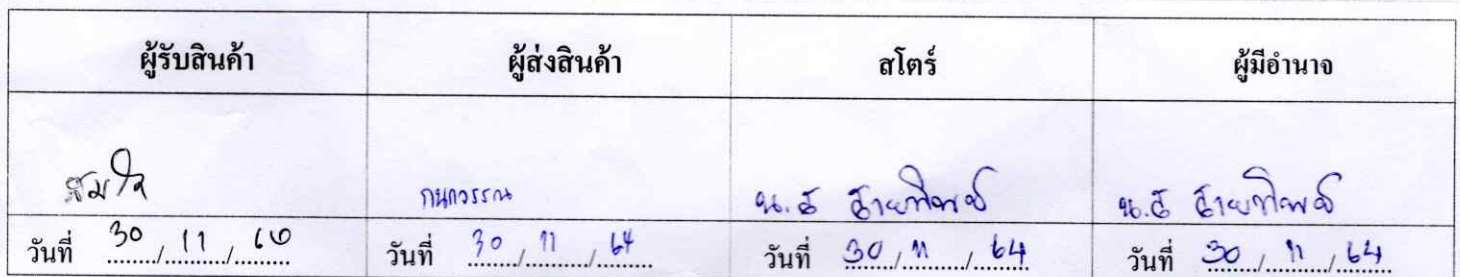 ผู้รับสินค้า ผู้ส่งสินค้า สโตร์ ผู้มีอำนาจ
สมใจ กนกวรรณ น.ส น.ส
วันที่ 30/11/ วันที่ 30/11/64 วันที่ 30/11/64 วันที่ 30/11/64